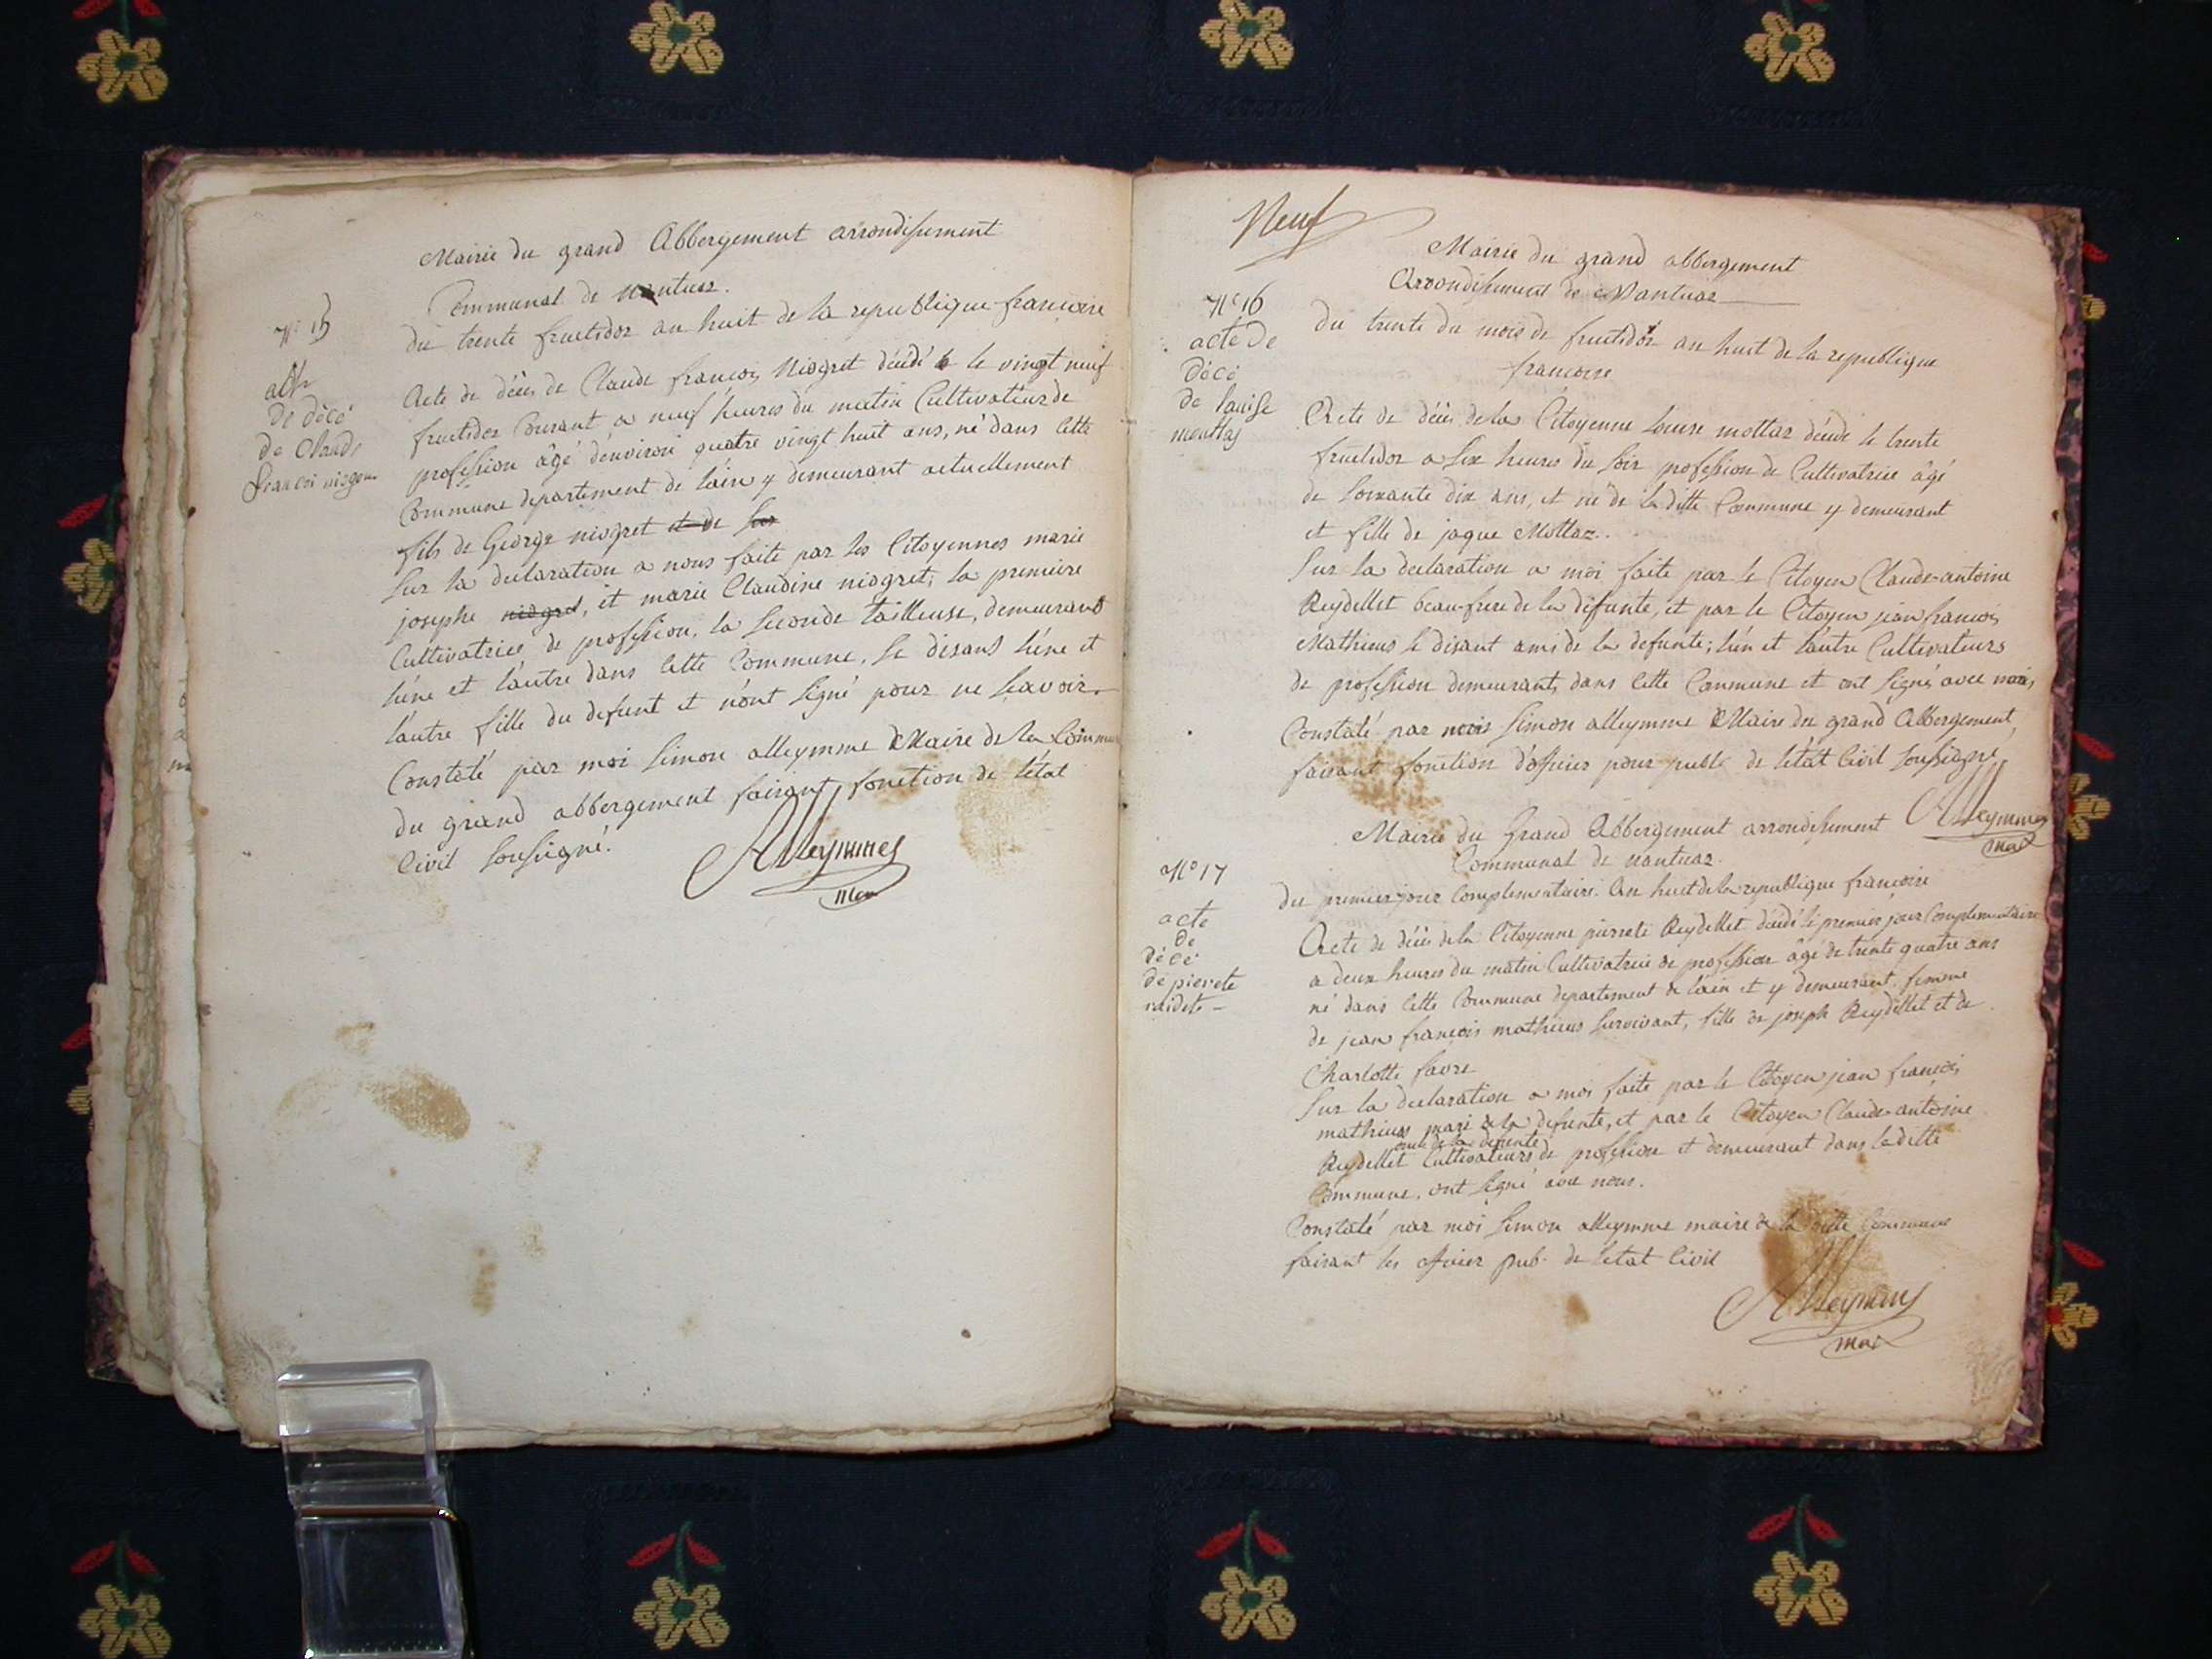 Mairie du grand Abbergement arrondissement
Communal de nantuaz.
du trente fructidor an huit de la republique francoise
N° 15
acte
de décé
de Claude
francoi niogret
Acte de décès de Claude francois Niogret décédé le vingt neuf
fructidor Courant a neuf heures du matin Cultivateur de
profession âgé d'environ quatre vingt huit ans, né dans Cette
Commune departement de l'ain y demeurant actuellement
fils de George niogret et de
Sur la declaration a nous faite par les Citoyennes marie
josephe niogret, et marie Claudine niogret, la premiere
Cultivatrice de profession, la seconde tailleuse, demeurant
l'une et l'autre dans Cette Commune, se disant l'une et
l'autre fille du defunt et n'ont signé pour ne scavoir.
Constaté par moi Simon alleymme Maire de la Commune
du grand abbergement faisant fonction de l'état
Civil soussigné.
Alleymmes
Neuf
Mairie du grand abbergement
Arrondissement de Nantuaz
N° 16
acte de
décé
de louise
mouttaz
du trente du mois de fructidor an huit de la republique
francoise
Acte de décès de la Citoyenne louise mottaz décédé le trente
fructidor a six heures du soir profession de Cultivatrice âgé
de soixante dix ans, et né de la ditte Commune y demeurant
et fille de jaque Mottaz.
Sur la declaration a moi faite par le Citoyen Claude-antoine
Reydellet beau-frere de la défunte, et par le Citoyen jean francois
Mathieus se disant ami de la defunte; l'un et l'autre Cultivateurs
de profession demeurants dans Cette Commune et ont signés avec moi,
Constaté par moi Simon alleymme Maire du grand Abbergement,
faisant fonction d'officier pour publi de l'état Civil soussigné,
Alleymmes
Mairie du Grand Abbergement arrondissement
Communal de nantuaz.
N° 17
acte
de
décé
de pierete
raidet
du premier jour complementaire. An huit de la republique francoise
Acte de décès de la Citoyenne pierrete Reydellet décédé le premier jour Complementaire
a deux heures du matin Cultivatrice de profession âgé de trente quatre ans
né dans Cette Commune departement de l'ain et y demeurant. femme
de jean francois mathieus survivant, fille de joseph Reydellet et de
Charlotte favre
Sur la declaration a moi faite par le Citoyen jean francois
mathieus mari de la defunte, et par le Citoyen Claude-antoine
oncle de la defunte
Reydellet Cultivateurs de profession et demeurant dans la ditte
Commune, ont signé avec nous.
Constaté par moi Simon alleymme maire de la ditte Commune
faisant les officier pub. de l'etat Civil
Alleymmes